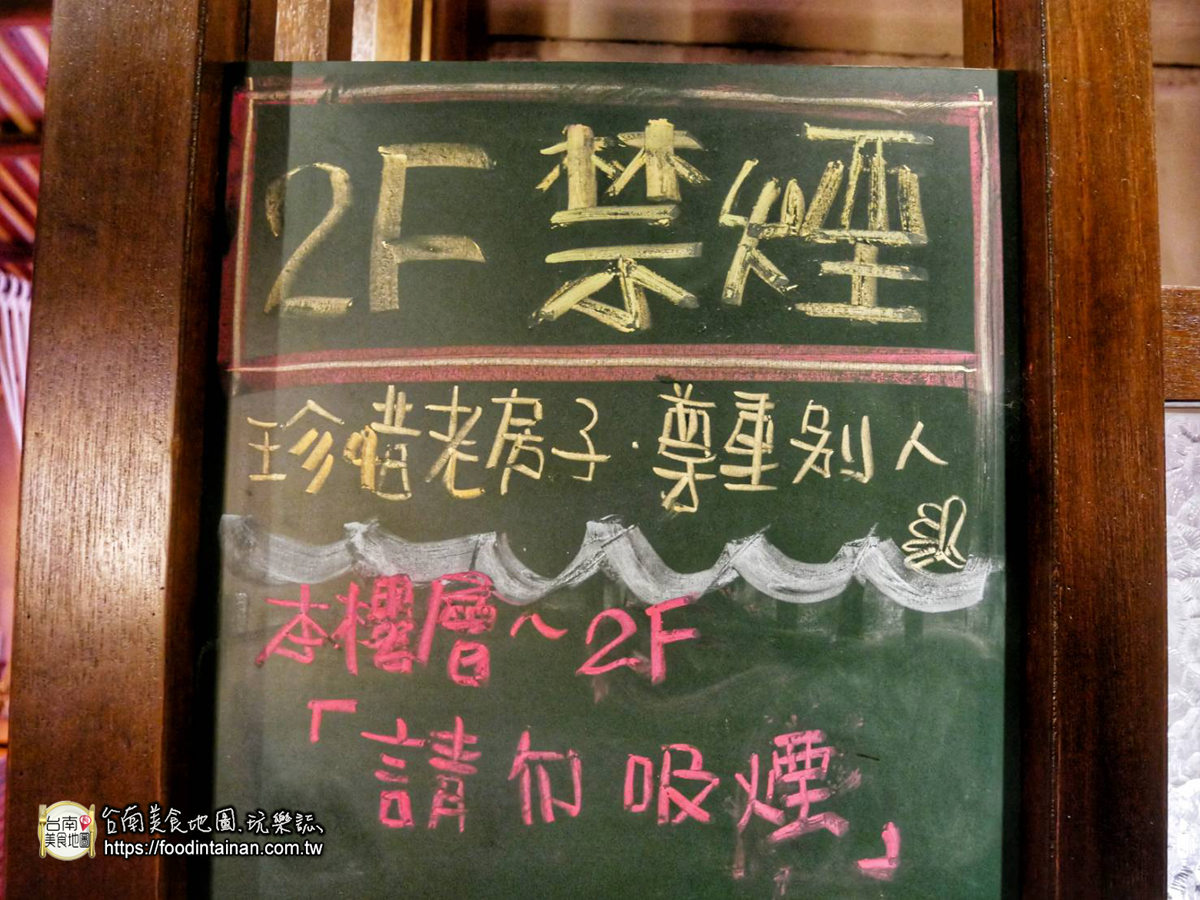 2F 禁煙
珍惜老房子．尊重別人
本樓層～2F
「請勿吸煙」
台南美食地圖
台南美食地圖.玩樂誌
https://foodintainan.com.tw